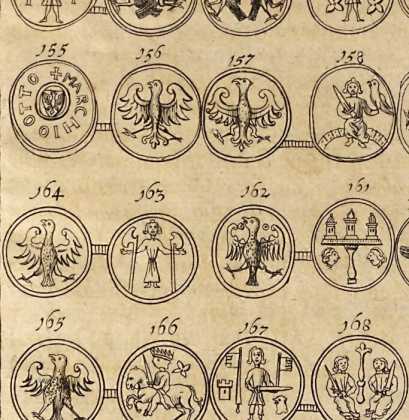 155 156 157 158
OTTO ✠ MARCHIO
164 163 162 161
165 166 167 168